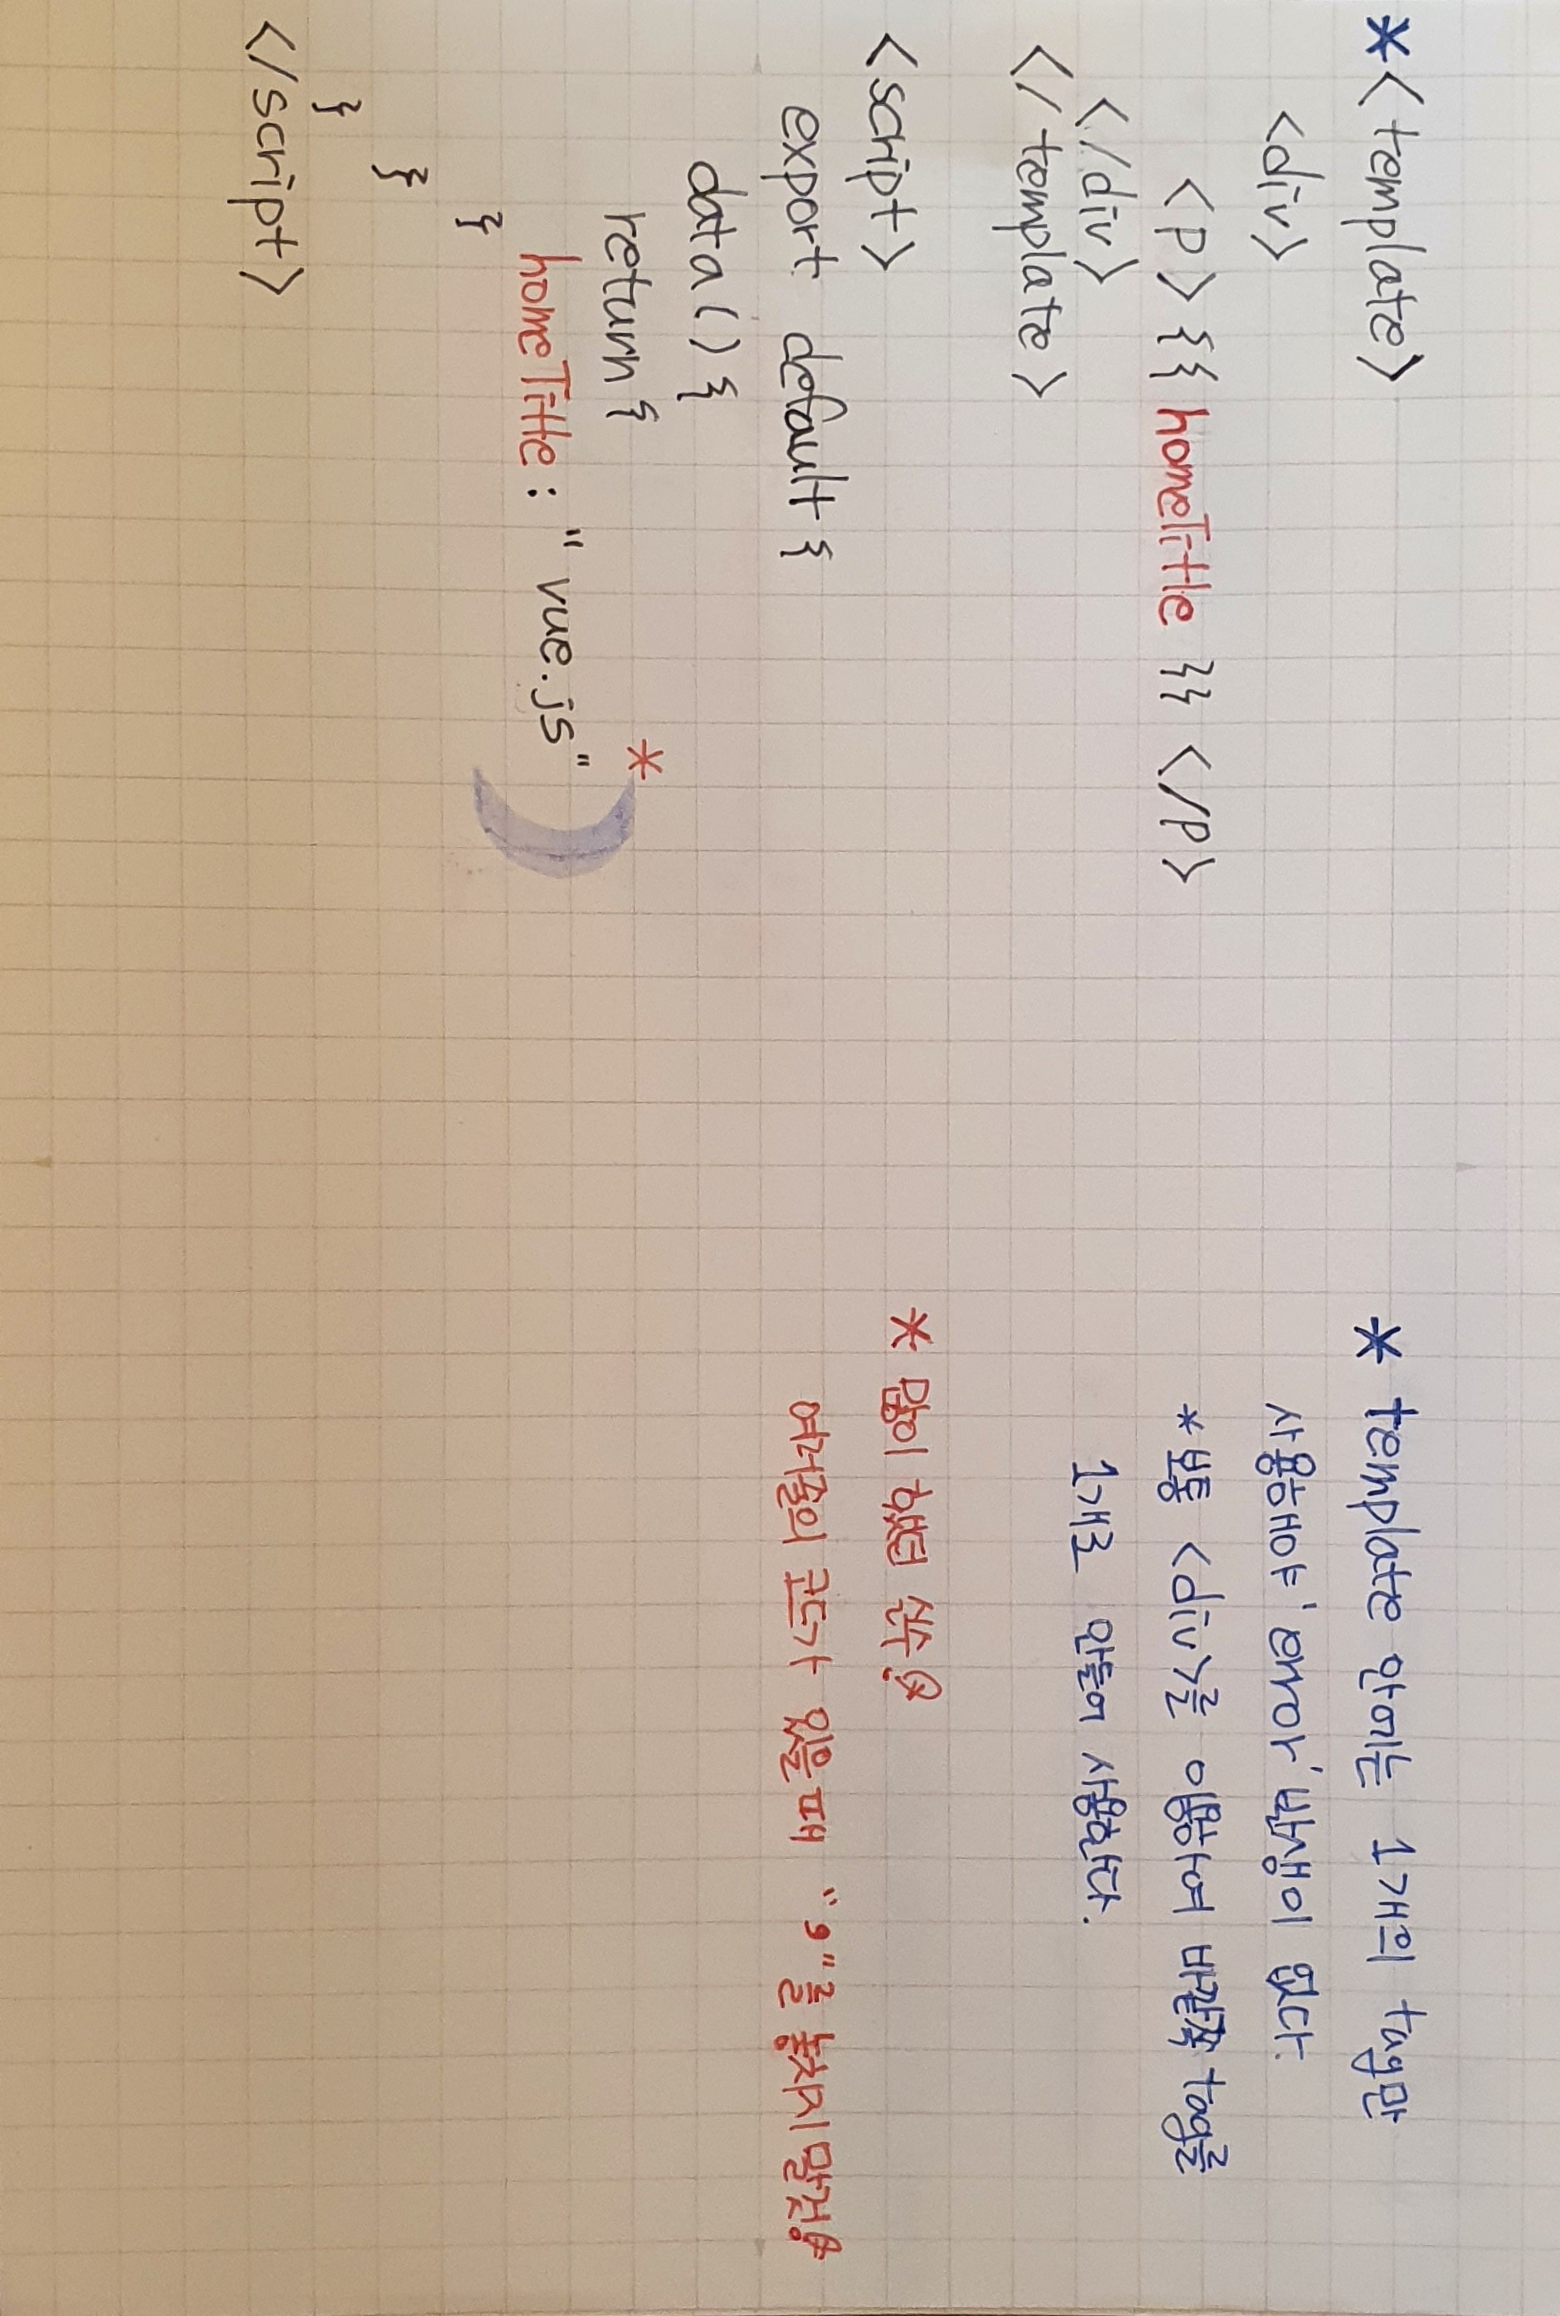 *< template>
<div>
<p>{{ homeTitle }} </p>
</div>
</ template>
<script>
export default {
data() {
return {
*
homeTitle : " vue.js"
}
}
}
</script>
* template 안에는 1개의 tag만
사용해야 'error' 발생이 없다.
* 보통 <div>를 이용하여 바깥쪽 tag를
1개로 만들어 사용한다.
* 많이 했던 실수!
여러줄의 코드가 있을 때 "," 를 놓치지 말것!